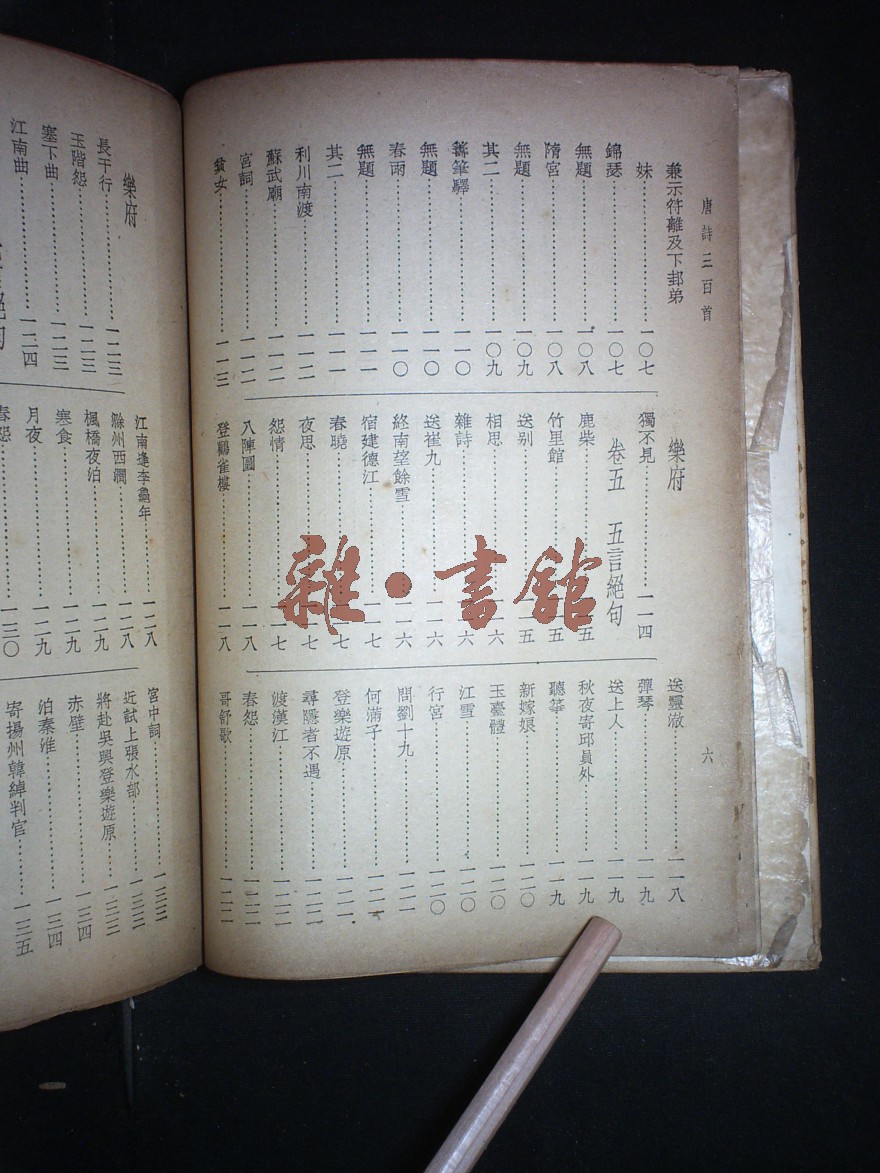 唐詩三百首
六
兼示符離及下邽弟
妹……一〇七
錦瑟……一〇七
無題……一〇八
隋宮……一〇八
無題……一〇九
其二……一〇九
籌筆驛……一一〇
無題……一一〇
春雨……一一〇
無題……一一一
其二……一一一
利川南渡……一一二
蘇武廟……一一二
宮詞……一一二
貧女……一一三
樂府
獨不見……一一四
卷五 五言絕句
鹿柴……五
竹里館……五
送別……一五
相思……一六
雜詩……六
送崔九……一一六
終南望餘雪……一一六
宿建德江……一一七
春曉……七
夜思……七
怨情……一七
八陣圖……一一八
登鸛雀樓……一一八
送靈澈……一一八
彈琴……一一九
送上人……一一九
秋夜寄邱員外……一一九
聽箏……一一九
新嫁娘……一二〇
玉臺體……一二〇
江雪……一二〇
行宮……一二〇
問劉十九……一二一
何滿子……一二一
登樂遊原……一二一
尋隱者不遇……一二二
渡漢江……一二二
春怨……一二二
哥舒歌……一二二
樂府
長干行……一二三
玉階怨……一二三
塞下曲……一二三
江南曲……一二四
絕句
江南逢李龜年……一二八
滁州西澗……一二八
楓橋夜泊……一二九
寒食……一二九
月夜……一二九
春怨……一三〇
宮中詞……一三三
近試上張水部……一三三
將赴吳興登樂遊原……一三三
赤壁……一三四
泊秦淮……一三四
寄揚州韓綽判官……一三五
雜·書館